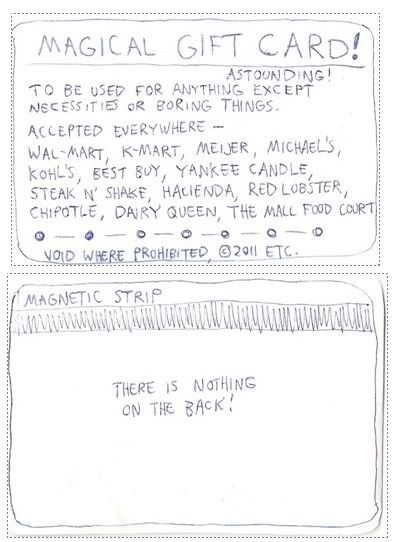 MAGICAL GIFT CARD!
ASTOUNDING!
TO BE USED FOR ANYTHING EXCEPT
NECESSITIES OR BORING THINGS.
ACCEPTED EVERYWHERE –
WAL-MART, K-MART, MEIJER, MICHAEL'S,
KOHL'S, BEST BUY, YANKEE CANDLE,
STEAK N' SHAKE, HACIENDA, RED LOBSTER,
CHIPOTLE, DAIRY QUEEN, THE MALL FOOD COURT
VOID WHERE PROHIBITED, ©2011 ETC.
MAGNETIC STRIP
THERE IS NOTHING
ON THE BACK!